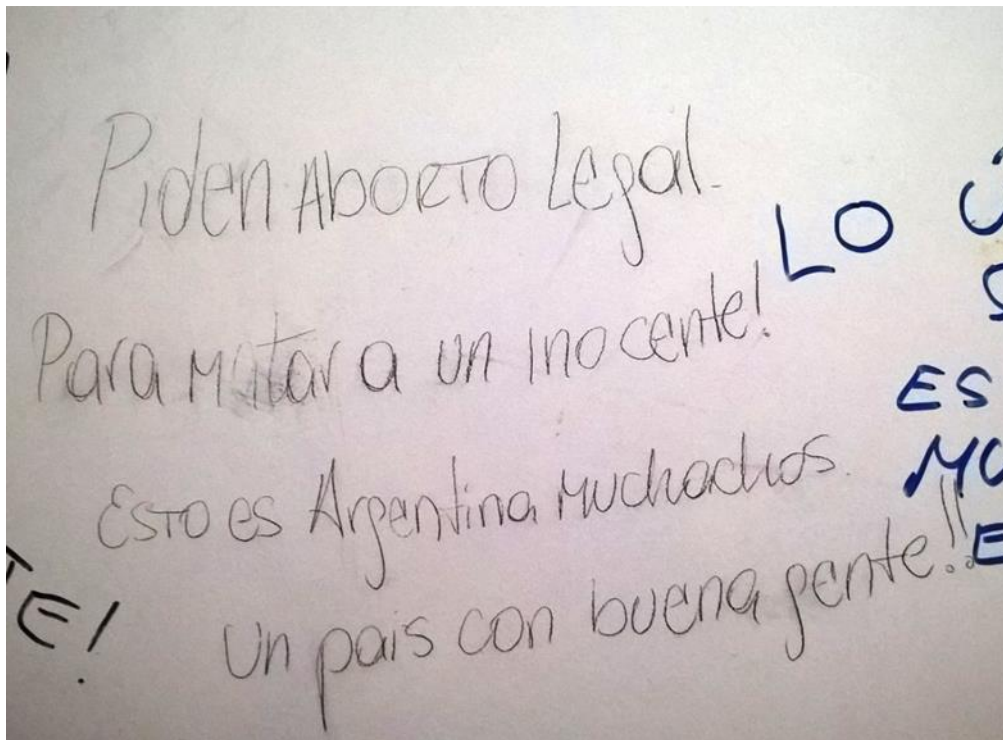 Piden Aborto Legal.
Para matar a un inocente!
Esto es Argentina muchachos.
Un pais con buena gente!!
LO
ES
TE!